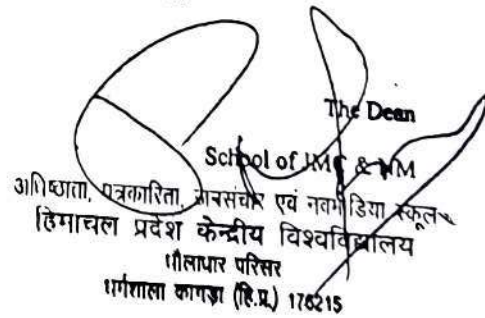 The Dean
School of JMC & NM
अधिष्ठाता, पत्रकारिता, जनसंचार एवं नवमीडिया स्कूल
हिमाचल प्रदेश केन्द्रीय विश्वविद्यालय
धौलाधार परिसर
धर्मशाला कागड़ा (हि.प्र.) 176215